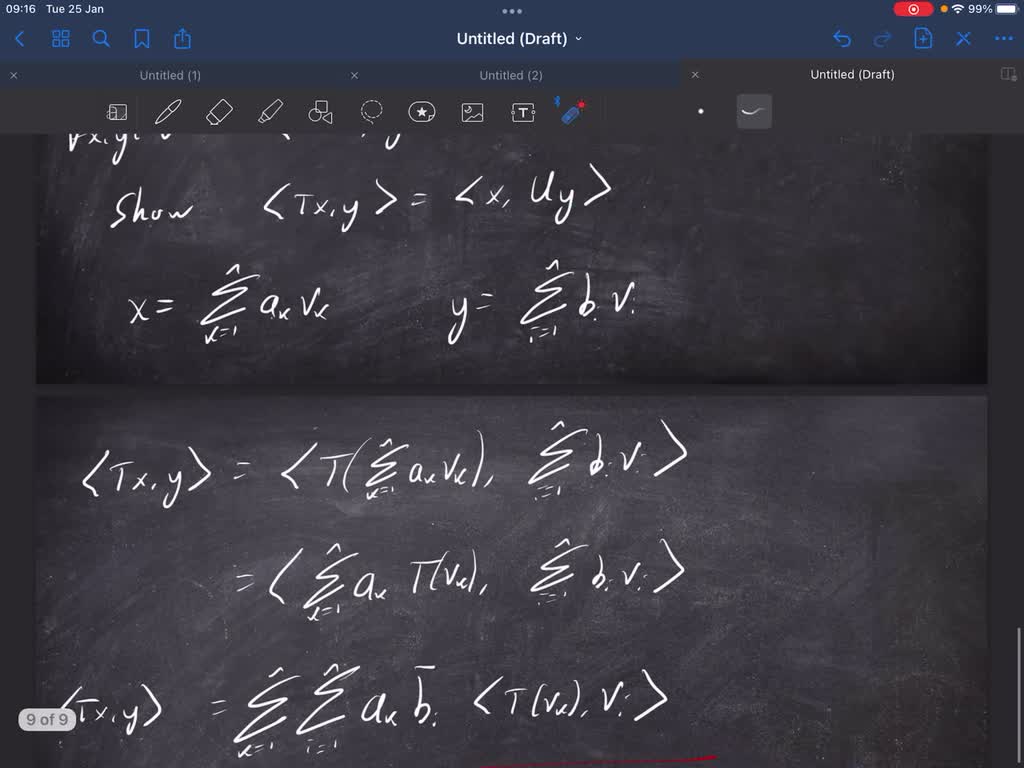 09:16 Tue 25 Jan 99%
Untitled (Draft)
Untitled (1) Untitled (2) Untitled (Draft)
Show <Tx, y> = <x, Uy>
x = n∑k=1 aₖ vₖ y = n∑i=1 bᵢ vᵢ
<Tx, y> = <T(n∑k=1 aₖ vₖ), n∑i=1 bᵢ vᵢ>
= <n∑k=1 aₖ T(vₖ), n∑i=1 bᵢ vᵢ>
<Tx, y> = n∑k=1 n∑i=1 aₖ b̄ᵢ <T(vₖ), vᵢ>
9 of 9